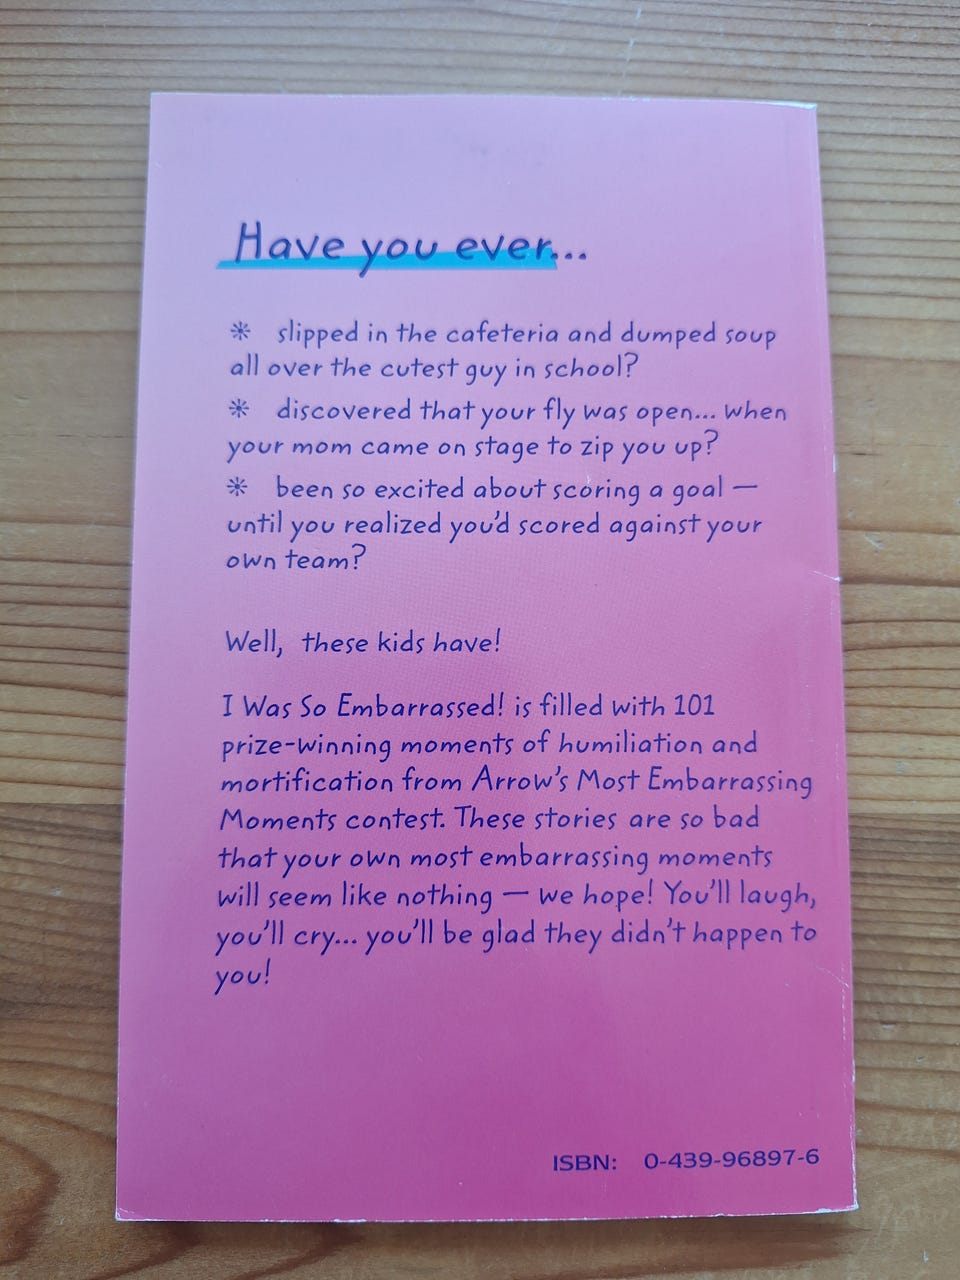 Have you ever...
✳ slipped in the cafeteria and dumped soup
all over the cutest guy in school?
✳ discovered that your fly was open... when
your mom came on stage to zip you up?
✳ been so excited about scoring a goal —
until you realized you'd scored against your
own team?
Well, these kids have!
I Was So Embarrassed! is filled with 101
prize-winning moments of humiliation and
mortification from Arrow's Most Embarrassing
Moments contest. These stories are so bad
that your own most embarrassing moments
will seem like nothing — we hope! You'll laugh,
you'll cry... you'll be glad they didn't happen to
you!
ISBN: 0-439-96897-6